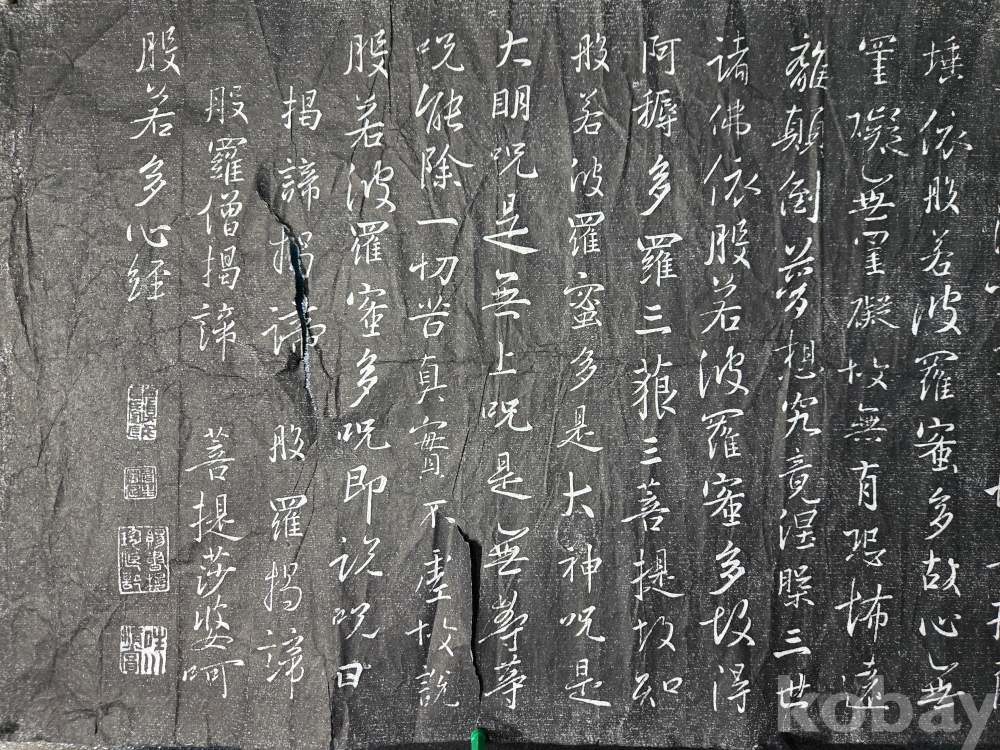 埵依般若波羅蜜多故心無
罣礙無罣礙故無有恐怖遠
離顛倒夢想究竟涅槃三世
諸佛依般若波羅蜜多故得
阿耨多羅三藐三菩提故知
般若波羅蜜多是大神呪是
大明呪是無上呪是無等等
呪能除一切苦真實不虛故說
般若波羅蜜多呪即說呪曰
揭諦揭諦 般羅揭諦
般羅僧揭諦 菩提莎婆呵
般若多心經
kobay